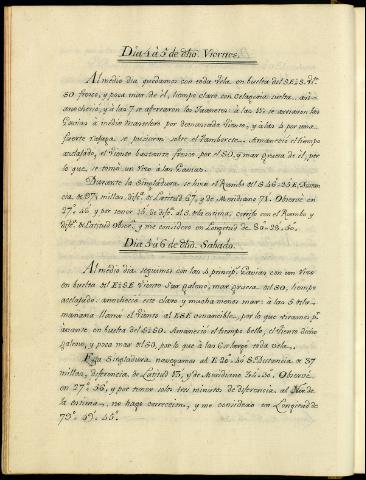 Dia 4 à 5 de dho. Viernes.
Al medio dia quedamos con toda vela en buelta del
SO fresco, y poca mar de él, tiempo claro con
anochecio, y à las 7 se aferraron los Juanetes: à las
Gavias à medio mastelero por demasiado Viento, y à las 4 por una
fuerte rafaga se pusieron sobre el Tamborete. Amanecio el tiempo
acelajado, el Viento bastante fresco por el SO, y mar gruesa de él, por
lo que se tomó un rizo à las Gavias.
Durante la Singladura se hizo el Rumbo del S 46
de 97 millas, difa. de Latitud 67, y de Meridiano 71. Observé en
27° 46', y por tener 15' de difa. al S. de la estima, correjo con el Rumbo y
difa. de Latitud Observ. y me considero en Longitud de 80
Dia 5 à 6 de dho. Sabado.
Al medio dia seguimos con las 4 princips. Gavias con un rizo
en buelta del E¼SE Viento Sur galeno, mar gruesa del SO, tiempo
acelajado: anochecio este claro y mucha menos mar: à las 5 de la
mañana llamó el Viento al ESE bonancible, por lo que viramos pr.
avante en buelta del S¼SO. Amanecio el tiempo bello, el Viento dicho
galeno, y poca mar del SO, por lo que à las 6 largé toda vela.
Esta Singladura navegamos al E Distancia de 37
millas, diferencia de Latitud 13, y de Meridiano Observé
en 27° 56', y por tener solos tres minutos de diferencia al
de la estima, no hago correccion, y me considero en Longitud de
79° 49'